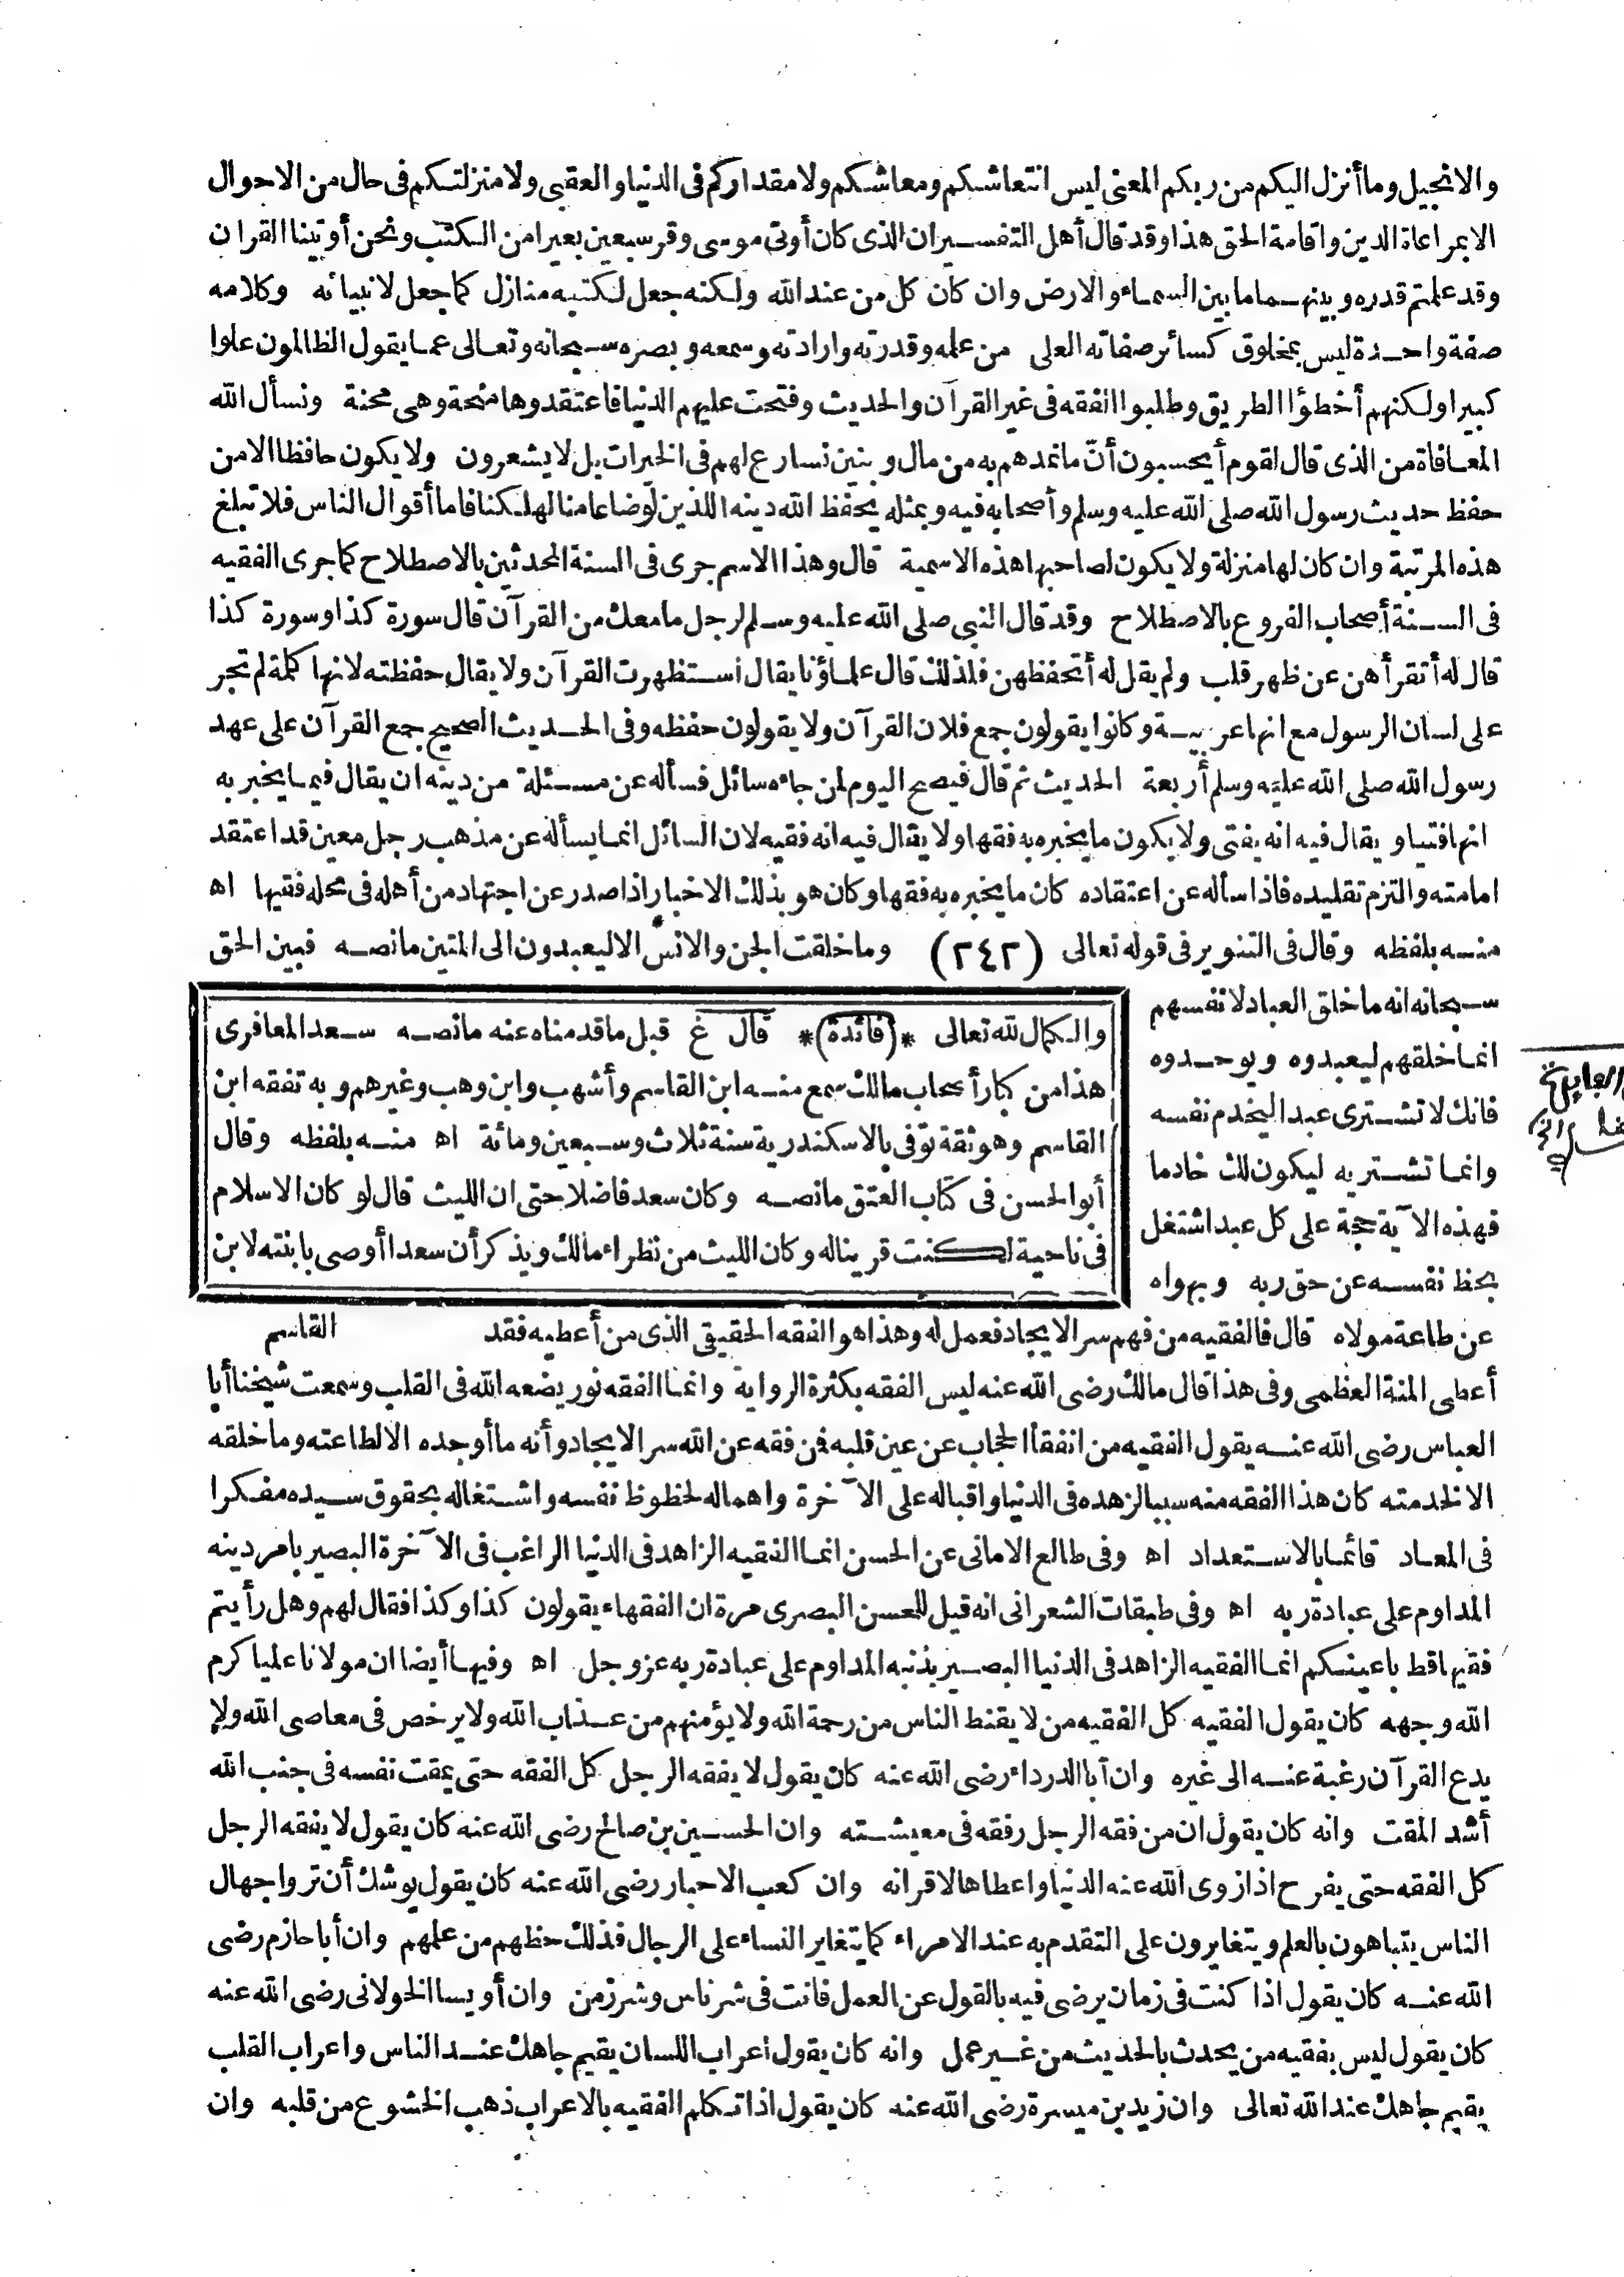 والانجيل وما أنزل اليكم من ربكم المعنى ليس انتعاشكم ومعاشكم ولا مقداركم فى الدنيا والعقبى ولا منزلتكم فى حال من الاحوال
الا بمراعاة الدين واقامة الحق هذا وقد قال أهل التفسير ان الذى كان أوتى موسى وقر سبعين بعيرا من الكتب ونحن أوتينا القران
وقد علمتم قدره وبينهما ما بين السماء والارض وان كان كل من عند الله ولكنه جعل لكتبه منازل كما جعل لانبيائه وكلامه
صفة واحدة ليس بمخلوق كسائر صفاته العلى من علمه وقدرته وارادته وسمعه وبصره سبحانه وتعالى عما يقول الظالمون علوا
كبيرا ولكنهم أخطؤا الطريق وطلبوا الفقه فى غير القرآن والحديث وفتحت عليهم الدنيا فاعتقدوها منحة وهى محنة ونسأل الله
المعافاة من الذى قال لقوم أيحسبون أنّ ما نمدهم به من مال وبنين نسارع لهم فى الخيرات بل لا يشعرون ولا يكون حافظا الا من
حفظ حديث رسول الله صلى الله عليه وسلم وأصحابه فيه وبمثله يحفظ الله دينه اللذين لو ضاعا منا لهلكنا فاما أقوال الناس فلا تبلغ
هذه المرتبة وان كان لها منزلة ولا يكون لصاحبها هذه الاسمية قال وهذا الاسم جرى فى السنة المحدثين بالاصطلاح كما جرى الفقيه
فى السنة أصحاب الفروع بالاصطلاح وقد قال النبى صلى الله عليه وسلم لرجل ما معك من القرآن قال سورة كذا وسورة كذا
قال له أتقرأهن عن ظهر قلب ولم يقل له أتحفظهن فلذلك قال علماؤنا يقال استظهرت القرآن ولا يقال حفظته لانها كلمة لم تجر
على لسان الرسول مع انها عربية وكانوا يقولون جمع فلان القرآن ولا يقولون حفظه وفى الحديث الصحيح جمع القرآن على عهد
رسول الله صلى الله عليه وسلم أربعة الحديث ثم قال فيصح اليوم لمن جاءه سائل فسأله عن مسئلة من دينه ان يقال فيما يخبر به
انها فتيا ويقال فيه انه يفتى ولا يكون ما يخبره به فقها ولا يقال فيه انه فقيه لان السائل انما يسأله عن مذهب رجل معين قد اعتقد
امامته والتزم تقليده فاذا سأله عن اعتقاده كان ما يخبره به فقها وكان هو بذلك الاخبار اذا صدر عن اجتهاد من أهله فى محله فقيها اه
منه بلفظه وقال فى التنوير فى قوله تعالى (٢٤٢) وما خلقت الجن والانس الا ليعبدون الى المتين ما نصه فبين الحق
سبحانه انه ما خلق العباد لانفسهم
انما خلقهم ليعبدوه ويوحدوه
فانك لا تشترى عبدا ليخدم نفسه
وانما تشتريه ليكون لك خادما
فهذه الآية حجة على كل عبد اشتغل
بحظ نفسه عن حق ربه وبهواه
والكمال لله تعالى *(فائدة)* قال غ قبل ما قدمناه عنه ما نصه سعد المعافرى
هذا من كبار أصحاب مالك سمع منه ابن القاسم وأشهب وابن وهب وغيرهم وبه تفقه ابن
القاسم وهو ثقة توفى بالاسكندرية سنة ثلاث وسبعين ومائة اه منه بلفظه وقال
أبو الحسن فى كتاب العتق ما نصه وكان سعد فاضلا حتى ان الليث قال لو كان الاسلام
فى ناحية لكنت قريناله وكان الليث من نظراء مالك ويذكر أن سعدا أوصى بابنته لابن
القاسم
عن طاعة مولاه قال فالفقيه من فهم سر الايجاد فعمل له وهذا هو الفقه الحقيقى الذى من أعطيه فقد
أعطى المنة العظمى وفى هذا قال مالك رضى الله عنه ليس الفقه بكثرة الرواية وانما الفقه نور يضعه الله فى القلب وسمعت شيخنا أبا
العباس رضى الله عنه يقول الفقيه من انفقأ الحجاب عن عين قلبه فمن فقه عن الله سر الايجاد وأنه ما أوجده الا لطاعته وما خلقه
الا لخدمته كان هذا الفقه منه سببا لزهده فى الدنيا واقباله على الآخرة واهماله لحظوظ نفسه واشتغاله بحقوق سيده مفكرا
فى المعاد قائما بالاستعداد اه وفى طالع الامانى عن الحسن انما الفقيه الزاهد فى الدنيا الراغب فى الآخرة البصير بامر دينه
المداوم على عبادة ربه اه وفى طبقات الشعرانى انه قيل للحسن البصرى مرة ان الفقهاء يقولون كذا وكذا فقال لهم وهل رأيتم
فقيها قط باعينكم انما الفقيه الزاهد فى الدنيا البصير بذنبه المداوم على عبادة ربه عز وجل اه وفيها أيضا ان مولانا عليا كرم
الله وجهه كان يقول الفقيه كل الفقيه من لا يقنط الناس من رحمة الله ولا يؤمنهم من عذاب الله ولا يرخص فى معاصى الله ولا
يدع القرآن رغبة عنه الى غيره وان أبا الدرداء رضى الله عنه كان يقول لا يفقه الرجل كل الفقه حتى يمقت نفسه فى جنب الله
أشد المقت وانه كان يقول ان من فقه الرجل رفقه فى معيشته وان الحسين بن صالح رضى الله عنه كان يقول لا يفقه الرجل
كل الفقه حتى يفرح اذا زوى الله عنه الدنيا واعطاها لاقرانه وان كعب الاحبار رضى الله عنه كان يقول يوشك أن تروا جهال
الناس يتباهون بالعلم ويتغايرون على التقدم به عند الامراء كما يتغاير النساء على الرجال فذلك حظهم من علمهم وان أبا حازم رضى
الله عنه كان يقول اذا كنت فى زمان يرضى فيه بالقول عن العمل فانت فى شر ناس وشر زمن وان أويسا الخولانى رضى الله عنه
كان يقول ليس بفقيه من يحدث بالحديث من غير عمل وانه كان يقول اعراب اللسان يقيم جاهك عند الناس واعراب القلب
يقيم جاهك عند الله تعالى وان زيد بن ميسرة رضى الله عنه كان يقول اذا تكلم الفقيه بالاعراب ذهب الخشوع من قلبه وان